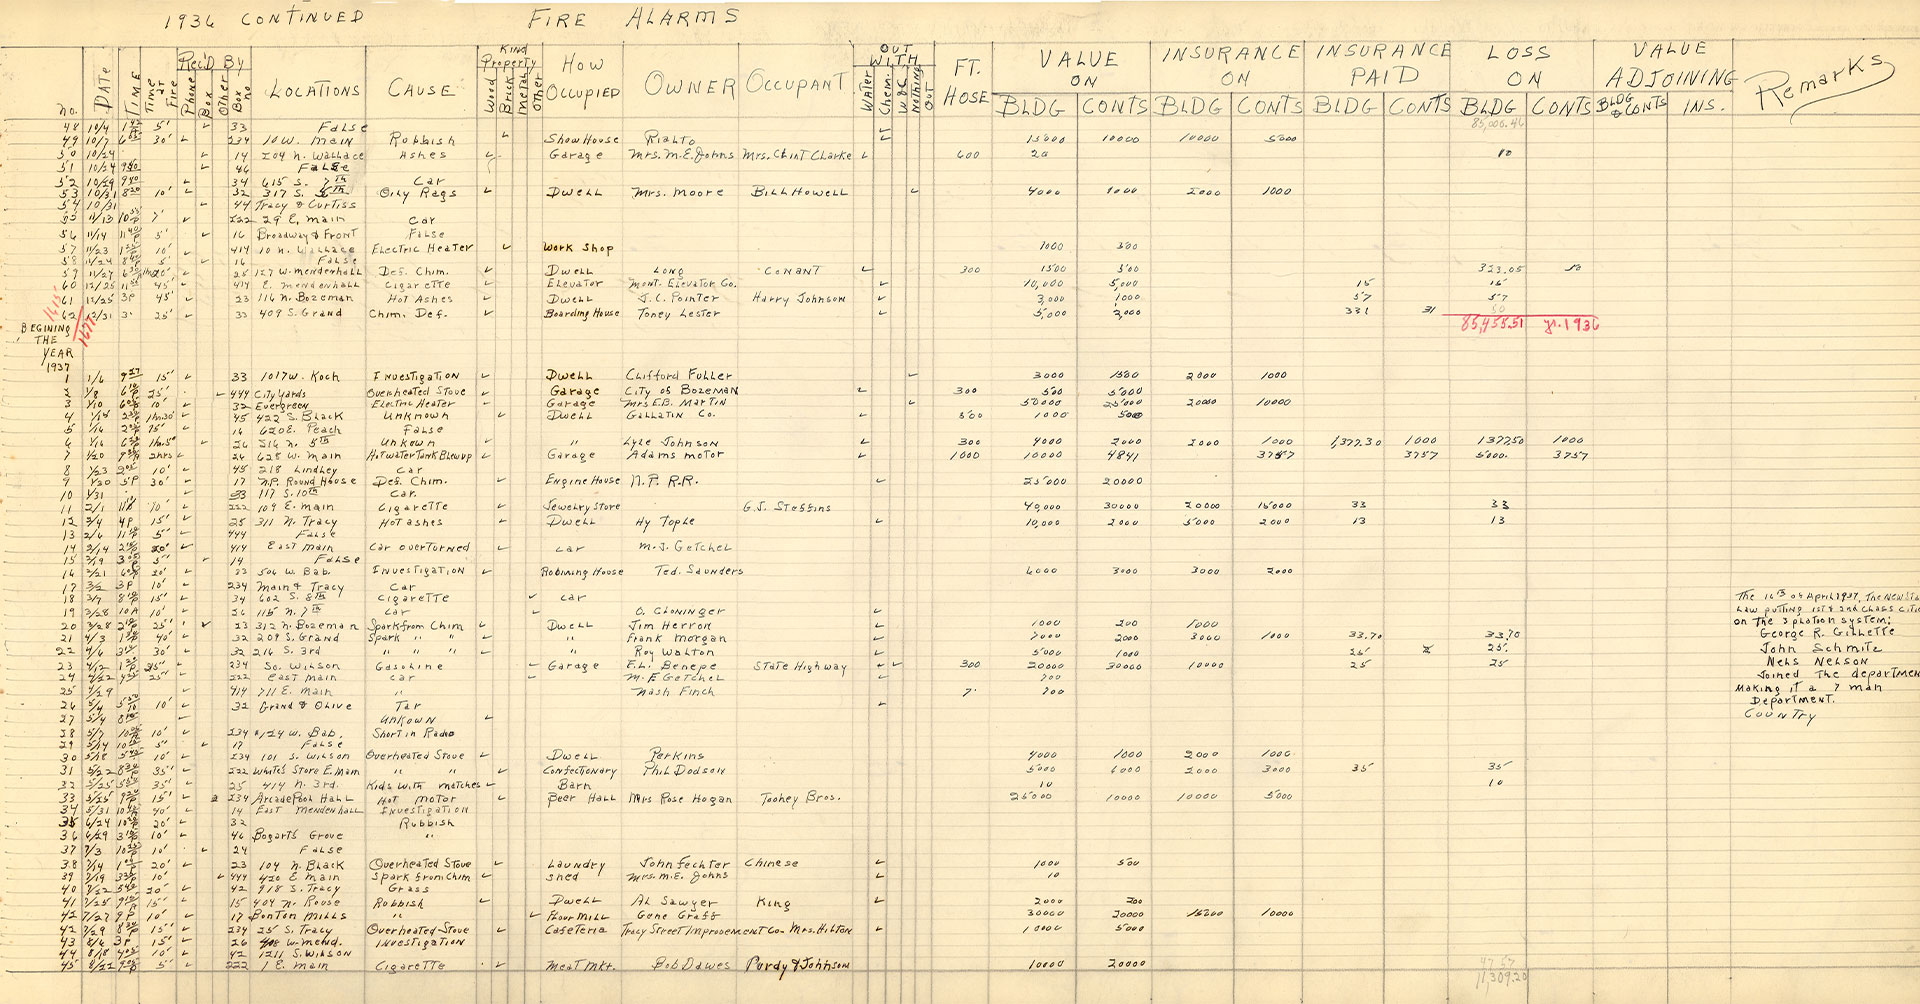 1936 CONTINUED FIRE ALARMS
KIND OUT
Rec'd By Property WITH VALUE INSURANCE INSURANCE LOSS VALUE
no. DATE TIME Time at Fire Phone Box Other Box no. LOCATIONS CAUSE Wood Brick Metal Other HOW OCCUPIED OWNER OCCUPANT Water Chem. W&C Nothing Out FT. HOSE ON ON PAID ON ADJOINING Remarks
BLDG CONTS BLDG CONTS BLDG CONTS BLDG CONTS BLDG & CONTS INS.
85,006.46
48 10/4 5' 33 False
49 10/7 30' 234 10 W. Main Rubbish Show House Rialto 15000 10000 10000 5000
50 10/24 14 204 N. Wallace Ashes Garage Mrs. M.E. Johns Mrs. Clint Clarke 600 20 10
51 10/24 46 False
52 10/29 34 615 S. 7th Car
53 10/31 10' 32 317 S. 5th Oily Rags Dwell Mrs. Moore Bill Howell 4000 1000 2000 1000
54 10/31 44 Tracy & Curtiss
55 11/13 7' 222 29 E. Main Car
56 11/14 5' 16 Broadway & Front False
57 11/23 10' 414 10 N. Wallace Electric Heater Work Shop 1000 300
58 11/24 5' 16 False
59 11/27 25 127 W. Mendenhall Def. Chim. Dwell Long Conant 300 1500 500 323.05 50
60 12/25 45' 414 E. Mendenhall Cigarette Elevator Mont. Elevator Co. 10,000 5,000 15 15
61 12/25 3P 45' 23 116 N. Bozeman Hot Ashes Dwell J.C. Pointer Harry Johnson 3,000 1000 57 57
62 12/31 25' 33 409 S. Grand Chim. Def. Boarding House Toney Lester 5,000 2,000 331 31 50
1677 85,455.51 yr. 1936
BEGINING
THE
YEAR
1937
1 1/6 15' 33 1017 W. Koch Investigation Dwell Clifford Fuller 3000 1500 2000 1000
2 1/8 25' 444 City Yards Overheated Stove Garage City of Bozeman 300 500 5000
3 1/10 10' 32 Evergreen Electric Heater Garage Mrs E.B. Martin 50000 25000 20000 10000
4 45 422 S. Black Unknown Dwell Gallatin Co. 500 1000 500
5 1/16 16 620 E. Peach False
6 1/16 26 516 N. 5th Unkown " Lyle Johnson 300 4000 2000 2000 1000 1,377.30 1000 1377.50 1000
7 1/20 2hrs 26 628 W. Main Hot water Tank Blewup Garage Adams Motor 1000 10000 4841 3757 3757 5000. 3757
8 1/23 10' 45 218 Lindley Car
9 1/30 5P 30' 17 N.P. Round House Def. Chim. Engine House N.P. R.R. 25000 20000
10 1/31 33 117 S. 10th Car.
11 2/1 222 109 E. Main Cigarette Jewelry Store G.J. Steffins 40,000 30000 20000 15000 33 33
12 2/4 4P 15' 25 311 N. Tracy Hot ashes Dwell Hy Tople 10,000 2000 5000 2000 13 13
13 2/6 5' 444 False
14 2/14 20' 414 East Main Car overturned car M.J. Getchel
15 2/19 5' 14 False
16 2/21 20' 33 506 W. Bab. Investigation Rooming House Ted. Saunders 6000 3000 3000 2000
17 3/2 3P 10' 234 Main & Tracy Car
18 3/7 15' 34 602 S. 8th Cigarette car
19 3/28 10A 10' 26 115 N. 7th Car O. Cloninger
20 3/28 25' 23 312 N. Bozeman Spark from Chim Dwell Jim Herron 1000 200 1000
21 4/3 40' 32 209 S. Grand Spark " " " Frank Morgan 7000 2000 3000 1000 33.70 33.70
22 4/6 30' 32 216 S. 3rd " " " " Roy Walton 5000 1000 25 25.
23 4/12 234 So. Wilson Gasoline Garage E.L. Benepe State Highway 300 20000 30000 10000 25 25
24 4/22 25' 222 East Main car M.F. Getchel 700
25 4/29 414 711 E. Main " Nash Finch 700
26 5/4 10' 32 Grand & Olive Tar
27 5/4 Unkown
28 5/7 10' 234 W. Bab. Short in Radio
29 5/14 5' 17 False
30 5/18 10' 234 101 S. Wilson Overheated Stove Dwell Perkins 4000 1000 2000 1000
31 5/22 35' 222 White's Store E. Main " " Confectionary Phil Dodson 5000 6000 2000 3000 35 35
32 5/25 35' 25 414 N. 3rd. Kids with matches Barn 10 10
33 5/25 15' 234 Arcade Pool Hall Hot Motor Beer Hall Mrs Rose Hogan Toohey Bros. 25000 10000 10000 5000
34 5/31 40' 14 East Mendenhall Investigation
35 6/24 20' 32 Rubbish
36 6/29 10' 46 Bogart's Grove "
37 7/3 10' 24 False
38 7/14 20' 23 104 N. Black Overheated Stove Laundry John Fechter Chinese 1000 500
39 7/19 10' 444 420 E Main Spark from Chim Shed Mrs. M.E. Johns 10
40 7/22 20' 42 918 S. Tracy Grass
41 7/25 15' 15 404 N. Rouse Rubbish Dwell Al Sawyer King 2000 200
42 7/27 9P 10' 17 Bonton Mills " Flour Mill Gene Graff 30000 20000 15000 10000
42 7/29 15' 234 25 S. Tracy Overheated-Stove Cafeteria Tracy Street Improvement Co Mrs. Hilton 10000 5000
43 8/6 3P 15' 26 408 W. Mend. Investigation
44 8/18 10' 42 1211 S. Wilson
45 8/22 5' 222 1 E. Main Cigarette Meat Mkt. Bob Dawes Purdy & Johnson 10000 20000
11,309.20
The 16th of April 1937, The New State
Law putting 1st & 2nd Class Cities
on The 3 platoon system;
George R. Gillette
John Schmitz
Nels Nelson
Joined The department
Making it a 7 man
Department.
Country